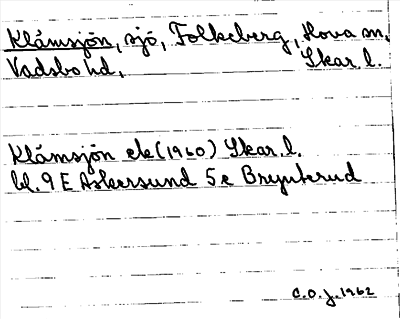 Klåmsjön, sjö, Folkeberg, Hova sn,
Vadsbo hd, Skar. l.
Klåmsjön ek (1960) Skar. l.
bl. 9 E Askersund 5 e Brynterud
C.O.J. 1962